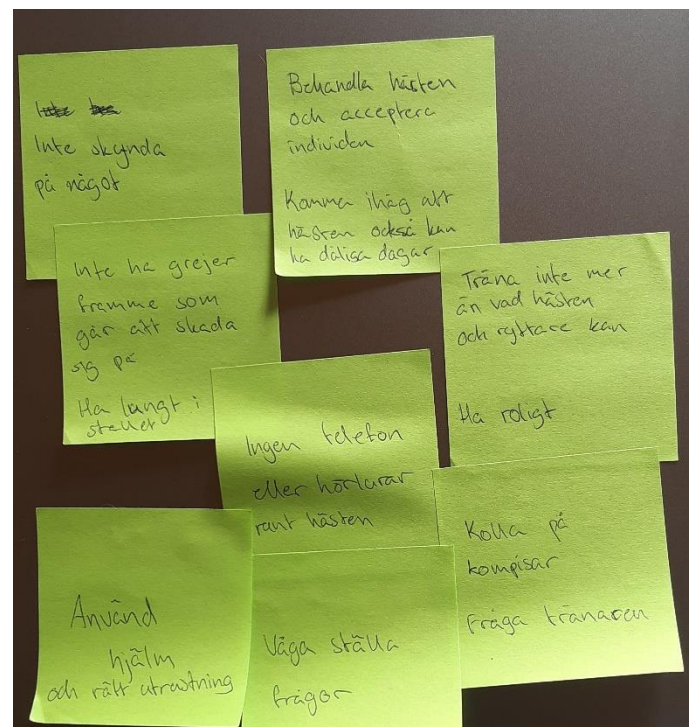 Inte skynda
på något
Behandla hästen
och acceptera
individen
Komma ihåg att
hästen också kan
ha dåliga dagar
Inte ha grejer
framme som
går att skada
sig på
Ha lungt i
stallet
Träna inte mer
än vad hästen
och ryttare kan
Ha roligt
Ingen telefon
eller hörlurar
runt hästen
Kolla på
kompisar
Fråga tränaren
Använd
hjälm
och rätt utrustning
Våga ställa
frågor